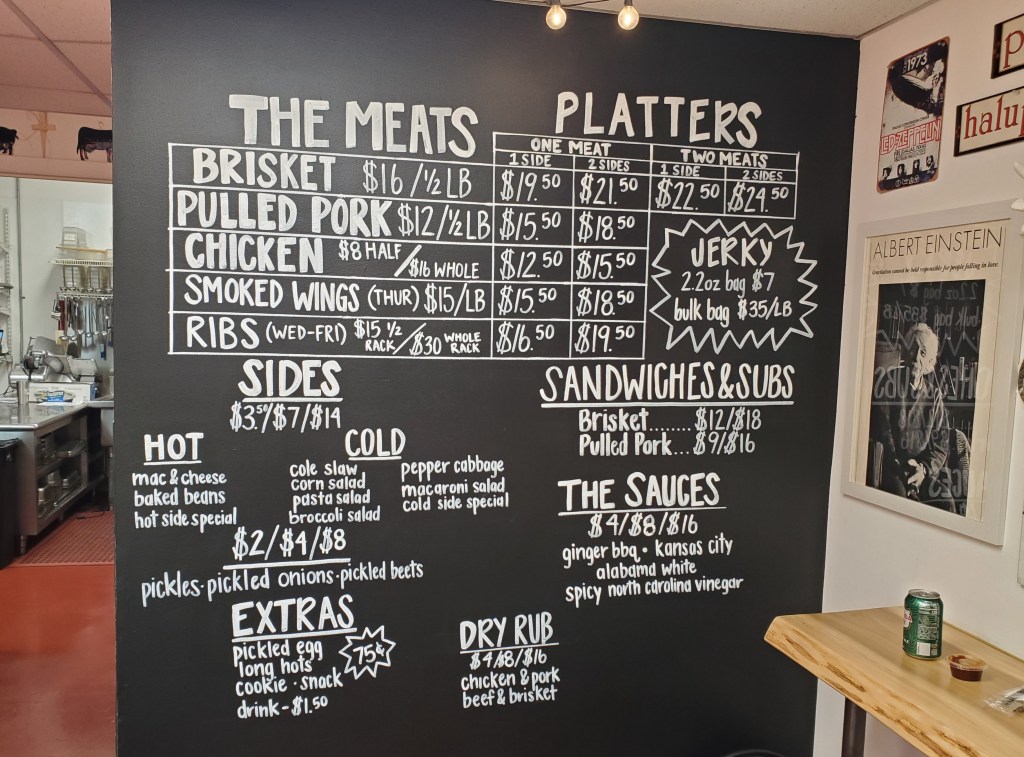 THE MEATS
PLATTERS
ONE MEAT
TWO MEATS
1 SIDE 2 SIDES 1 SIDE 2 SIDES
BRISKET $16/½ LB $19.50 $21.50 $22.50 $24.50
PULLED PORK $12/½ LB $15.50 $18.50
CHICKEN $8 HALF/$16 WHOLE $12.50 $15.50
SMOKED WINGS (THUR) $15/LB $15.50 $18.50
RIBS (WED-FRI) $15 ½ RACK/$30 WHOLE RACK $16.50 $19.50
JERKY
2.2oz bag $7
bulk bag $35/LB
SIDES
$3.50/$7/$14
HOT
mac & cheese
baked beans
hot side special
COLD
cole slaw
corn salad
pasta salad
broccoli salad
pepper cabbage
macaroni salad
cold side special
$2/$4/$8
pickles · pickled onions · pickled beets
EXTRAS
pickled egg
long hots
cookie · snack
75¢
drink - $1.50
SANDWICHES & SUBS
Brisket........ $12/$18
Pulled Pork... $9/$16
THE SAUCES
$4/$8/$16
ginger bbq · kansas city
alabama white
spicy north carolina vinegar
DRY RUB
$4/$8/$16
chicken & pork
beef & brisket
1973
LED ZEPPELIN
p
halup
ALBERT EINSTEIN
Gravitation cannot be held responsible for people falling in love.